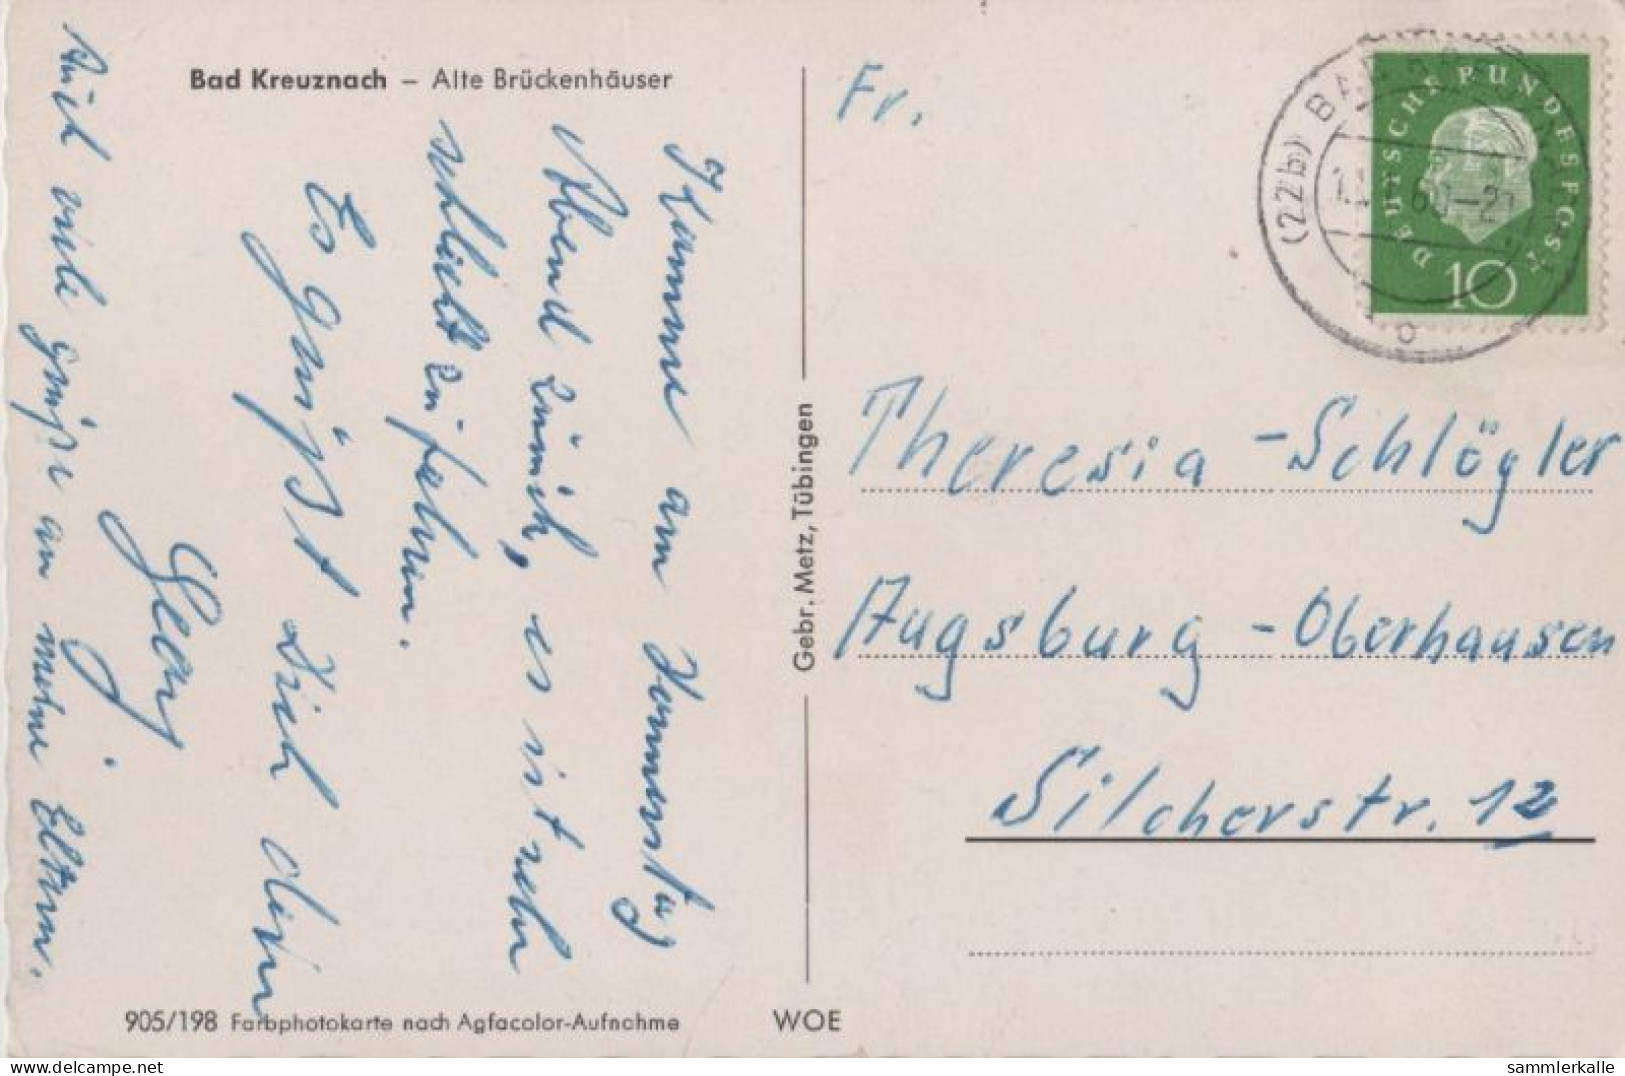 Bad Kreuznach – Alte Brückenhäuser
Komme am Donnerstag
Abend zurück, es ist sehr
schlecht zu fahren.
Es grüßt Dich dein
Georg
Auch viele Grüße an meine Eltern.
905/198 Farbphotokarte nach Agfacolor-Aufnahme
WOE
Gebr. Metz, Tübingen
Fr.
Theresia - Schlögler
Augsburg - Oberhausen
Silcherstr. 12
DEUTSCHE BUNDESPOST
10
(22b) BAD
60-2
b
delcampe.net
sammlerkalle